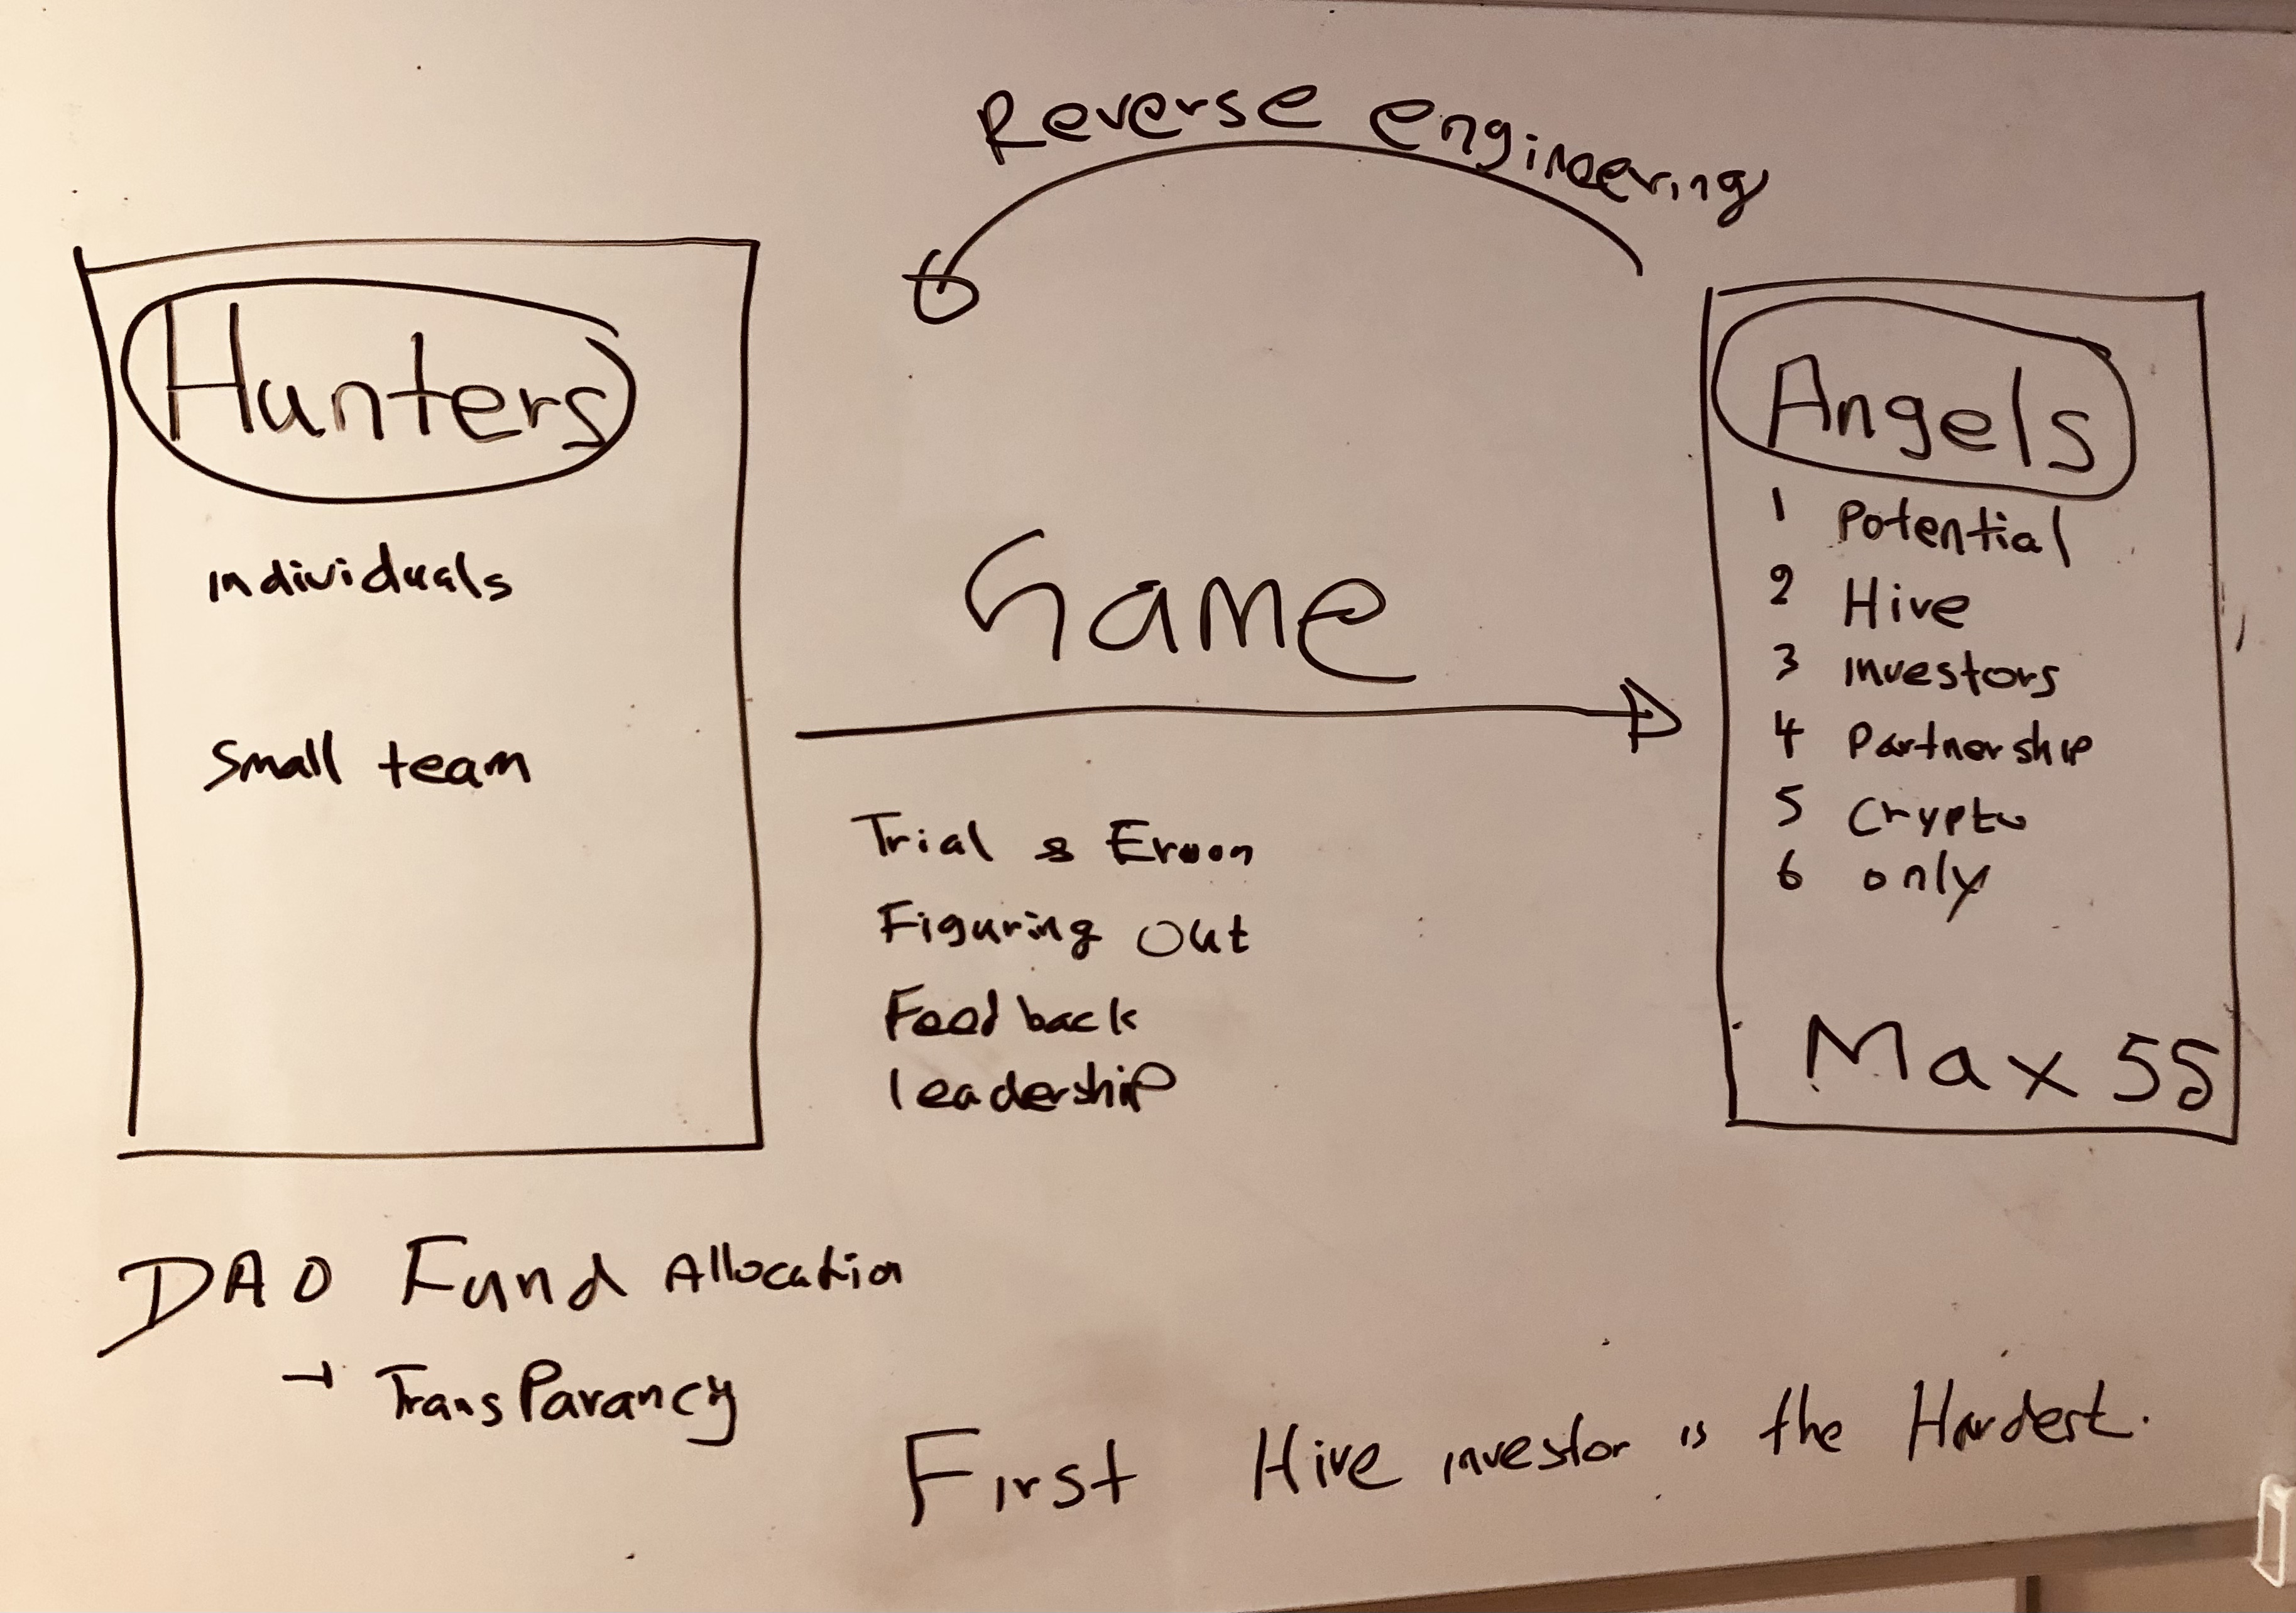 Reverse engineering
Hunters
individuals
Small team
Game
Trial & Eroon
Figuring Out
Feedback
leadership
Angels
1 Potential
2 Hive
3 investors
4 Partnership
5 Crypto
6 only
Max 55
DAO Fund Allocation
→ TransParancy
First Hive investor is the Hardest.